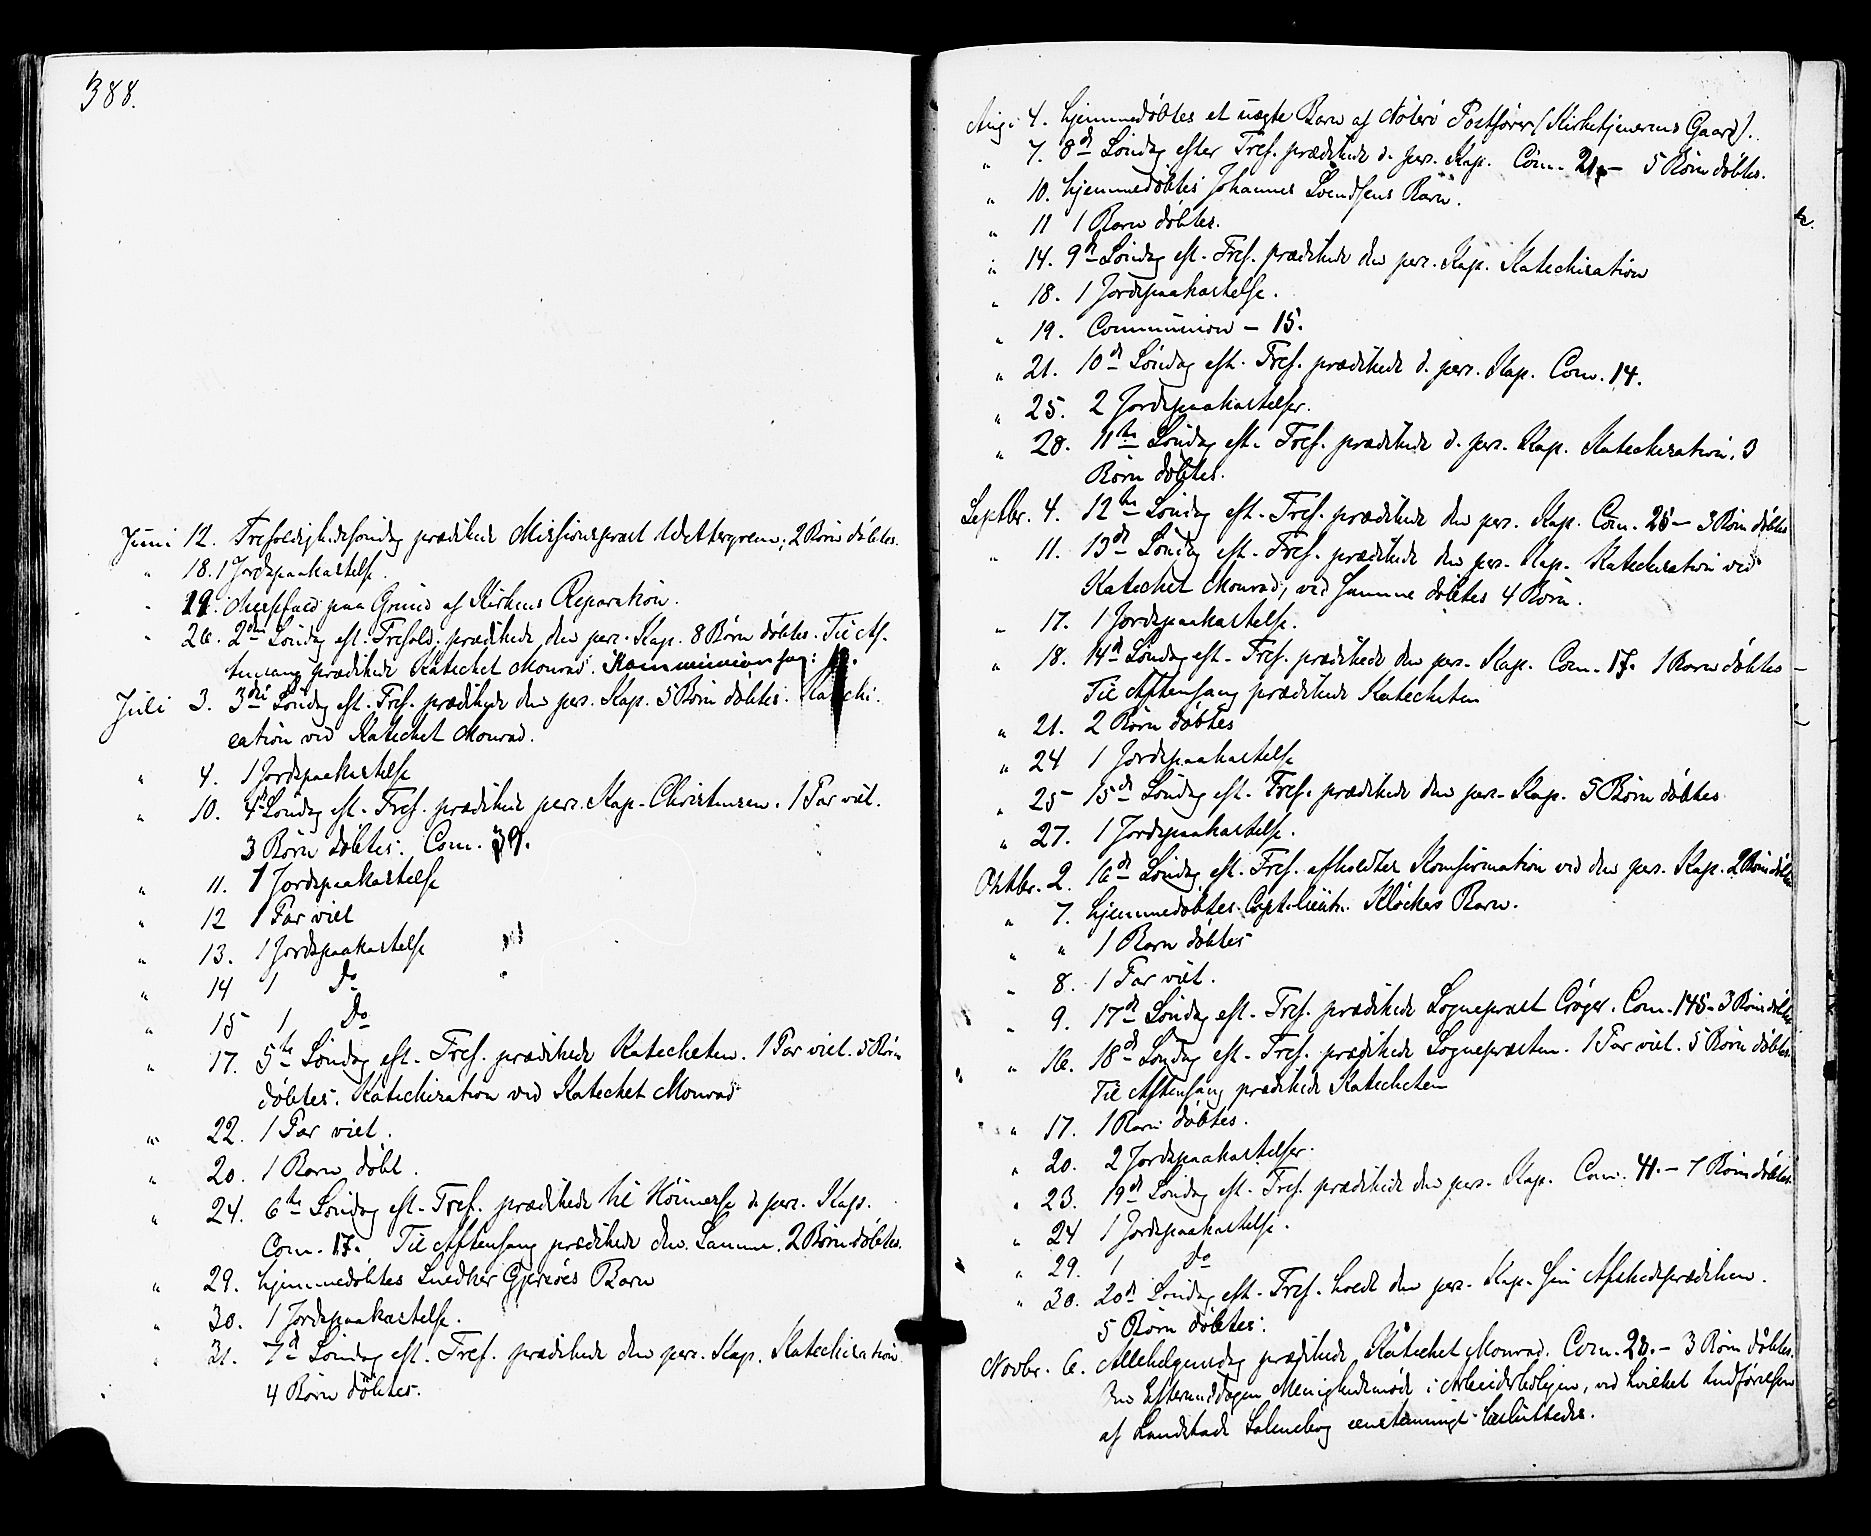 388.
Juni 12. Trefoldighedssøndag prædikede Missionspræst Wettergreen; 2 Børn døbtes.
" 18. 1 Jordspaakastelse.
" 19. Messefald paa Grund af Kirkens Reparation.
" 26. 2den Søndag eft. Trefold. prædikede den pers. Kap. 8 Børn døbtes. Til Af-
tensang prædikede Katechet Monrad.
Juli 3. 3die Søndag eft. Tref. prædikede den pers. Kap. 5 Børn døbtes. Katechi-
sation ved Katechet Monrad.
" 4. 1 Jordspaakastelse
" 10. 4de Søndag eft. Tref. prædikede pers. Kap. Christensen. 1 Par viet.
3 Børn døbtes. Com. 39.
" 11. 1 Jordspaakastelse
" 12 1 Par viet
" 13. 1 Jordspaakastelse
" 14 1 Do
" 15 1 Do
" 17. 5te Søndag eft. Tref. prædikede Katecheten. 1 Par viet. 5 Børn
døbtes. Katechisation ved Katechet Monrad
" 22. 1 Par viet.
" 20. 1 Barn døbt.
" 24. 6te Søndag eft. Tref. prædikede til Höimesse d. pers. Kap.
Com. 17. Til Aftensang prædikede den Samme. 2 Børn døbtes.
" 29. hjemmedøbtes Snedker Barn
" 30. 1 Jordspaakastelse.
" 31. 7de Søndag eft. Tref. prædikede den pers. Kap. Katechisation
4 Børn døbtes.
Aug. 4. hjemmedøbtes et uægte Barn af Nöterö Postfører (Kirketjenerens Gaard).
" 7. 8de Søndag efter Tref. prædikede d. pers. Kap. Com. 21. – 5 Børn døbtes.
" 10. hjemmedøbtes Johannes Svendsens Barn.
" 11 1 Barn døbtes.
" 14. 9de Søndag eft. Tref. prædikede den pers. Kap. Katechisation
" 18. 1 Jordspaakastelse.
" 19. Communion – 15.
" 21. 10de Søndag eft. Tref. prædikede d. pers. Kap. Com. 14.
" 25. 2 Jordspaakastelser.
" 28. 11te Søndag eft. Tref. prædikede d. pers. Kap. Katechisation. 3
Børn døbtes.
Septbr. 4. 12te Søndag eft. Tref. prædikede den pers. Kap. Com. 25 – 3 Børn døbtes
" 11. 13de Søndag eft. Tref. prædikede den pers. Kap. Katechisation ved
Katechet Monrad; ved Samme døbtes 4 Børn.
" 17. 1 Jordspaakastelse.
" 18. 14de Søndag eft. Tref. prædikede den pers. Kap. Com. 17. 1 Barn døbtes –
Til Aftensang prædikede Katecheten
" 21. 2 Børn døbtes
" 24 1 Jordspaakastelse
" 25 15de Søndag eft. Tref. prædikede den pers. Kap. 5 Børn døbtes
" 27. 1 Jordspaakastelse.
Oktbr. 2. 16de Søndag eft. Tref. afholdtes Konfirmation ved den pers. Kap. 2 Børn døbtes
" 7. hjemmedøbtes Capt.lieutn. Kløckers Barn.
" " 1 Barn døbtes
" 8. 1 Par viet.
" 9. 17de Søndag eft. Tref. prædikede Sognepræst Crøger. Com. 145 – 3 Børn døbtes
" 16. 18de Søndag eft. Tref. prædikede Sognepræsten. 1 Par viet. 5 Børn døbtes.
Til Aftensang prædikede Katecheten
" 17. 1 Barn døbtes.
" 20. 2 Jordspaakastelser.
" 23. 19de Søndag eft. Tref. prædikede den pers. Kap. Com. 41. – 7 Børn døbtes.
" 24 1 Jordspaakastelse.
" 29. 1 Do
" 30. 20de Søndag eft. Tref. holdt den pers. Kap. sin Afskedsprædiken.
5 Børn døbtes.
Novbr. 6. Allehelgensdag prædikede Katechet Monrad. Com. 20. – 3 Børn døbtes.
Om Eftermiddagen Menighedsmøde i Arbeiderboligen, ved hvilket Indførelsen
af Landstads Salmebog eenstemmigt besluttedes.